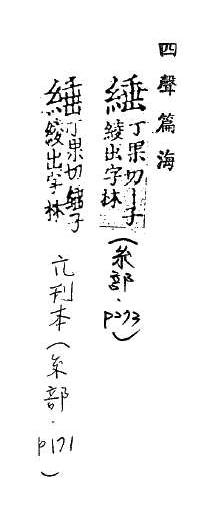 四聲篇海
綞
丁果切｜子
綾出字林
(糸部．P273)
綞
丁果切綞子
綾出字林
元刊本(糸部．P171)